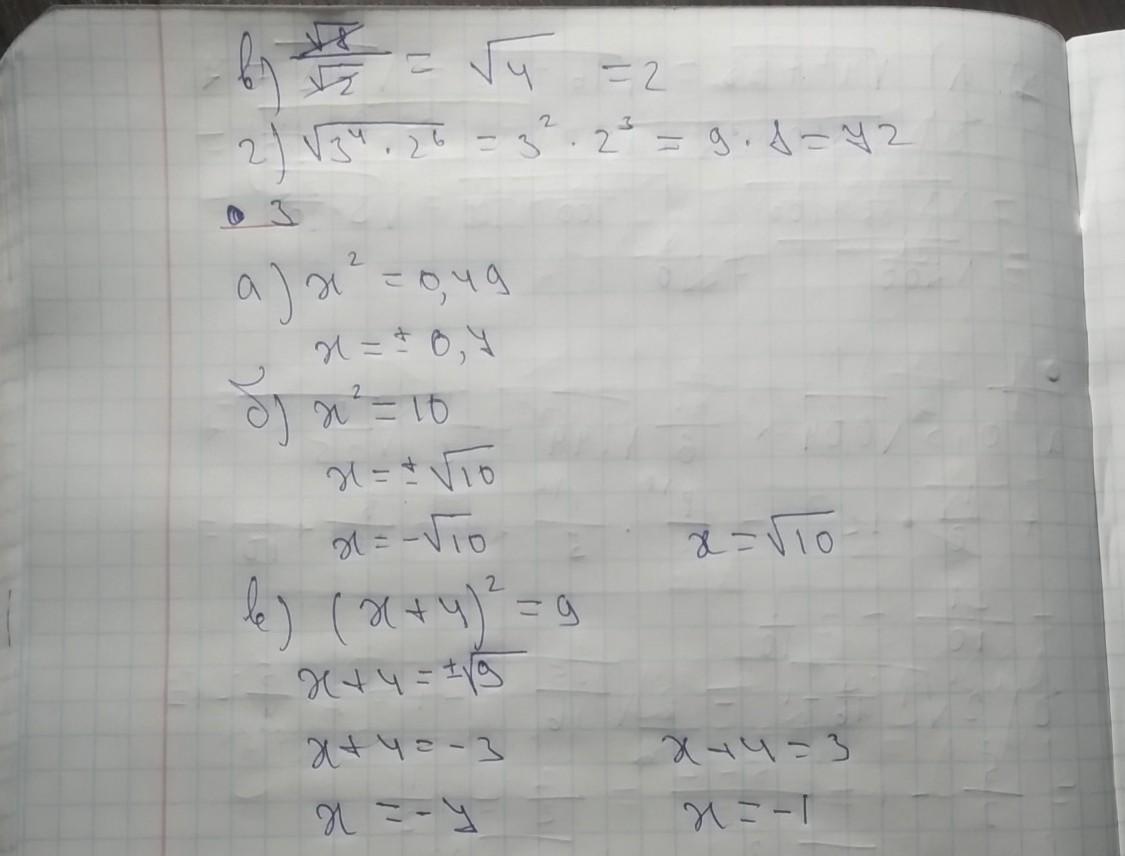 в) √8/√2 = √4 = 2
г) √3⁴ · 2⁶ = 3² · 2³ = 9 · 8 = 72
• 3
а) x² = 0,49
x = ± 0,7
б) x² = 10
x = ± √10
x = -√10 x = √10
в) (x + 4)² = 9
x + 4 = ±√9
x + 4 = - 3 x + 4 = 3
x = - 7 x = - 1